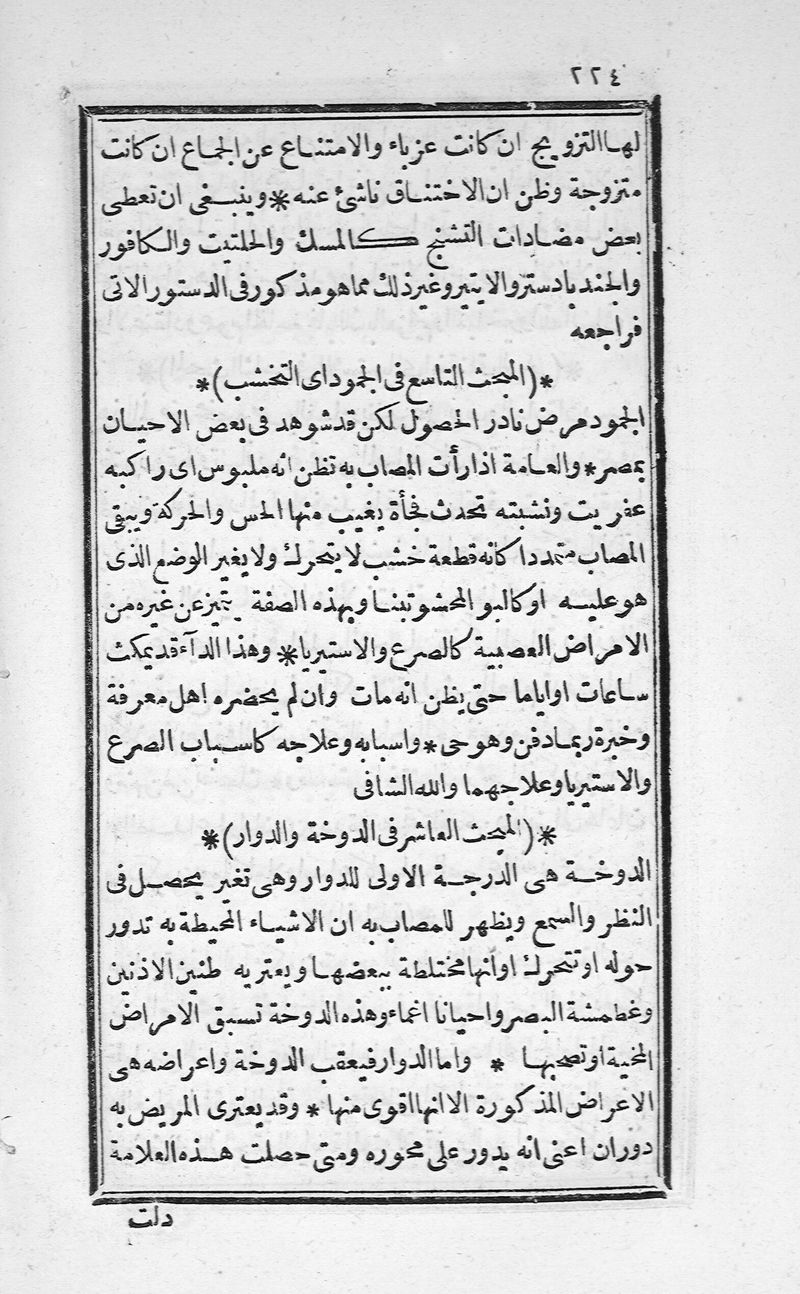 ٢٢٤
لها التزويج ان كانت عزباء والامتناع عن الجماع ان كانت
متزوجة وظن ان الاختناق ناشئ عنه * وينبغى ان تعطى
بعض مضادات التشنج كالمسك والحلتيت والكافور
والجندبادستر والايتير وغير ذلك مما هو مذكور فى الدستور الاتى
فراجعه
*(المبحث التاسع فى الجمود اى التخشب)*
الجمود مرض نادر الحصول لكن قد شوهد فى بعض الاحيان
بمصر * والعامة اذا رأت المصاب به تظن انه ملبوس اى راكبه
عفريت ونشبته تحدث فجأة يغيب منها الحس والحركة ويبقى
المصاب متمددا كانه قطعة خشب لا يتحرك ولا يغير الوضع الذى
هو عليه او كالبو المحشو تبنا وبهذه الصفة يتميز عن غيره من
الامراض العصبية كالصرع والاستيريا * وهذا الدآء قد يمكث
ساعات او اياما حتى يظن انه مات وان لم يحضره اهل معرفة
وخبرة ربما دفن وهو حى * واسبابه وعلاجه كاسباب الصرع
والاستيريا وعلاجهما والله الشافى
*(المبحث العاشر فى الدوخة والدوار)*
الدوخة هى الدرجة الاولى للدوار وهى تغير يحصل فى
النظر والسمع ويظهر للمصاب به ان الاشياء المحيطة به تدور
حوله او تتحرك او انها مختلطة ببعضها ويعتريه طنين الاذنين
وغطمشة البصر واحيانا اغماء وهذه الدوخة تسبق الامراض
المخية او تصحبها * واما الدوار فيعقب الدوخة واعراضه هى
الاعراض المذكورة الا انها اقوى منها * وقد يعترى المريض به
دوران اعنى انه يدور على محوره ومتى حصلت هذه العلامة
دلت